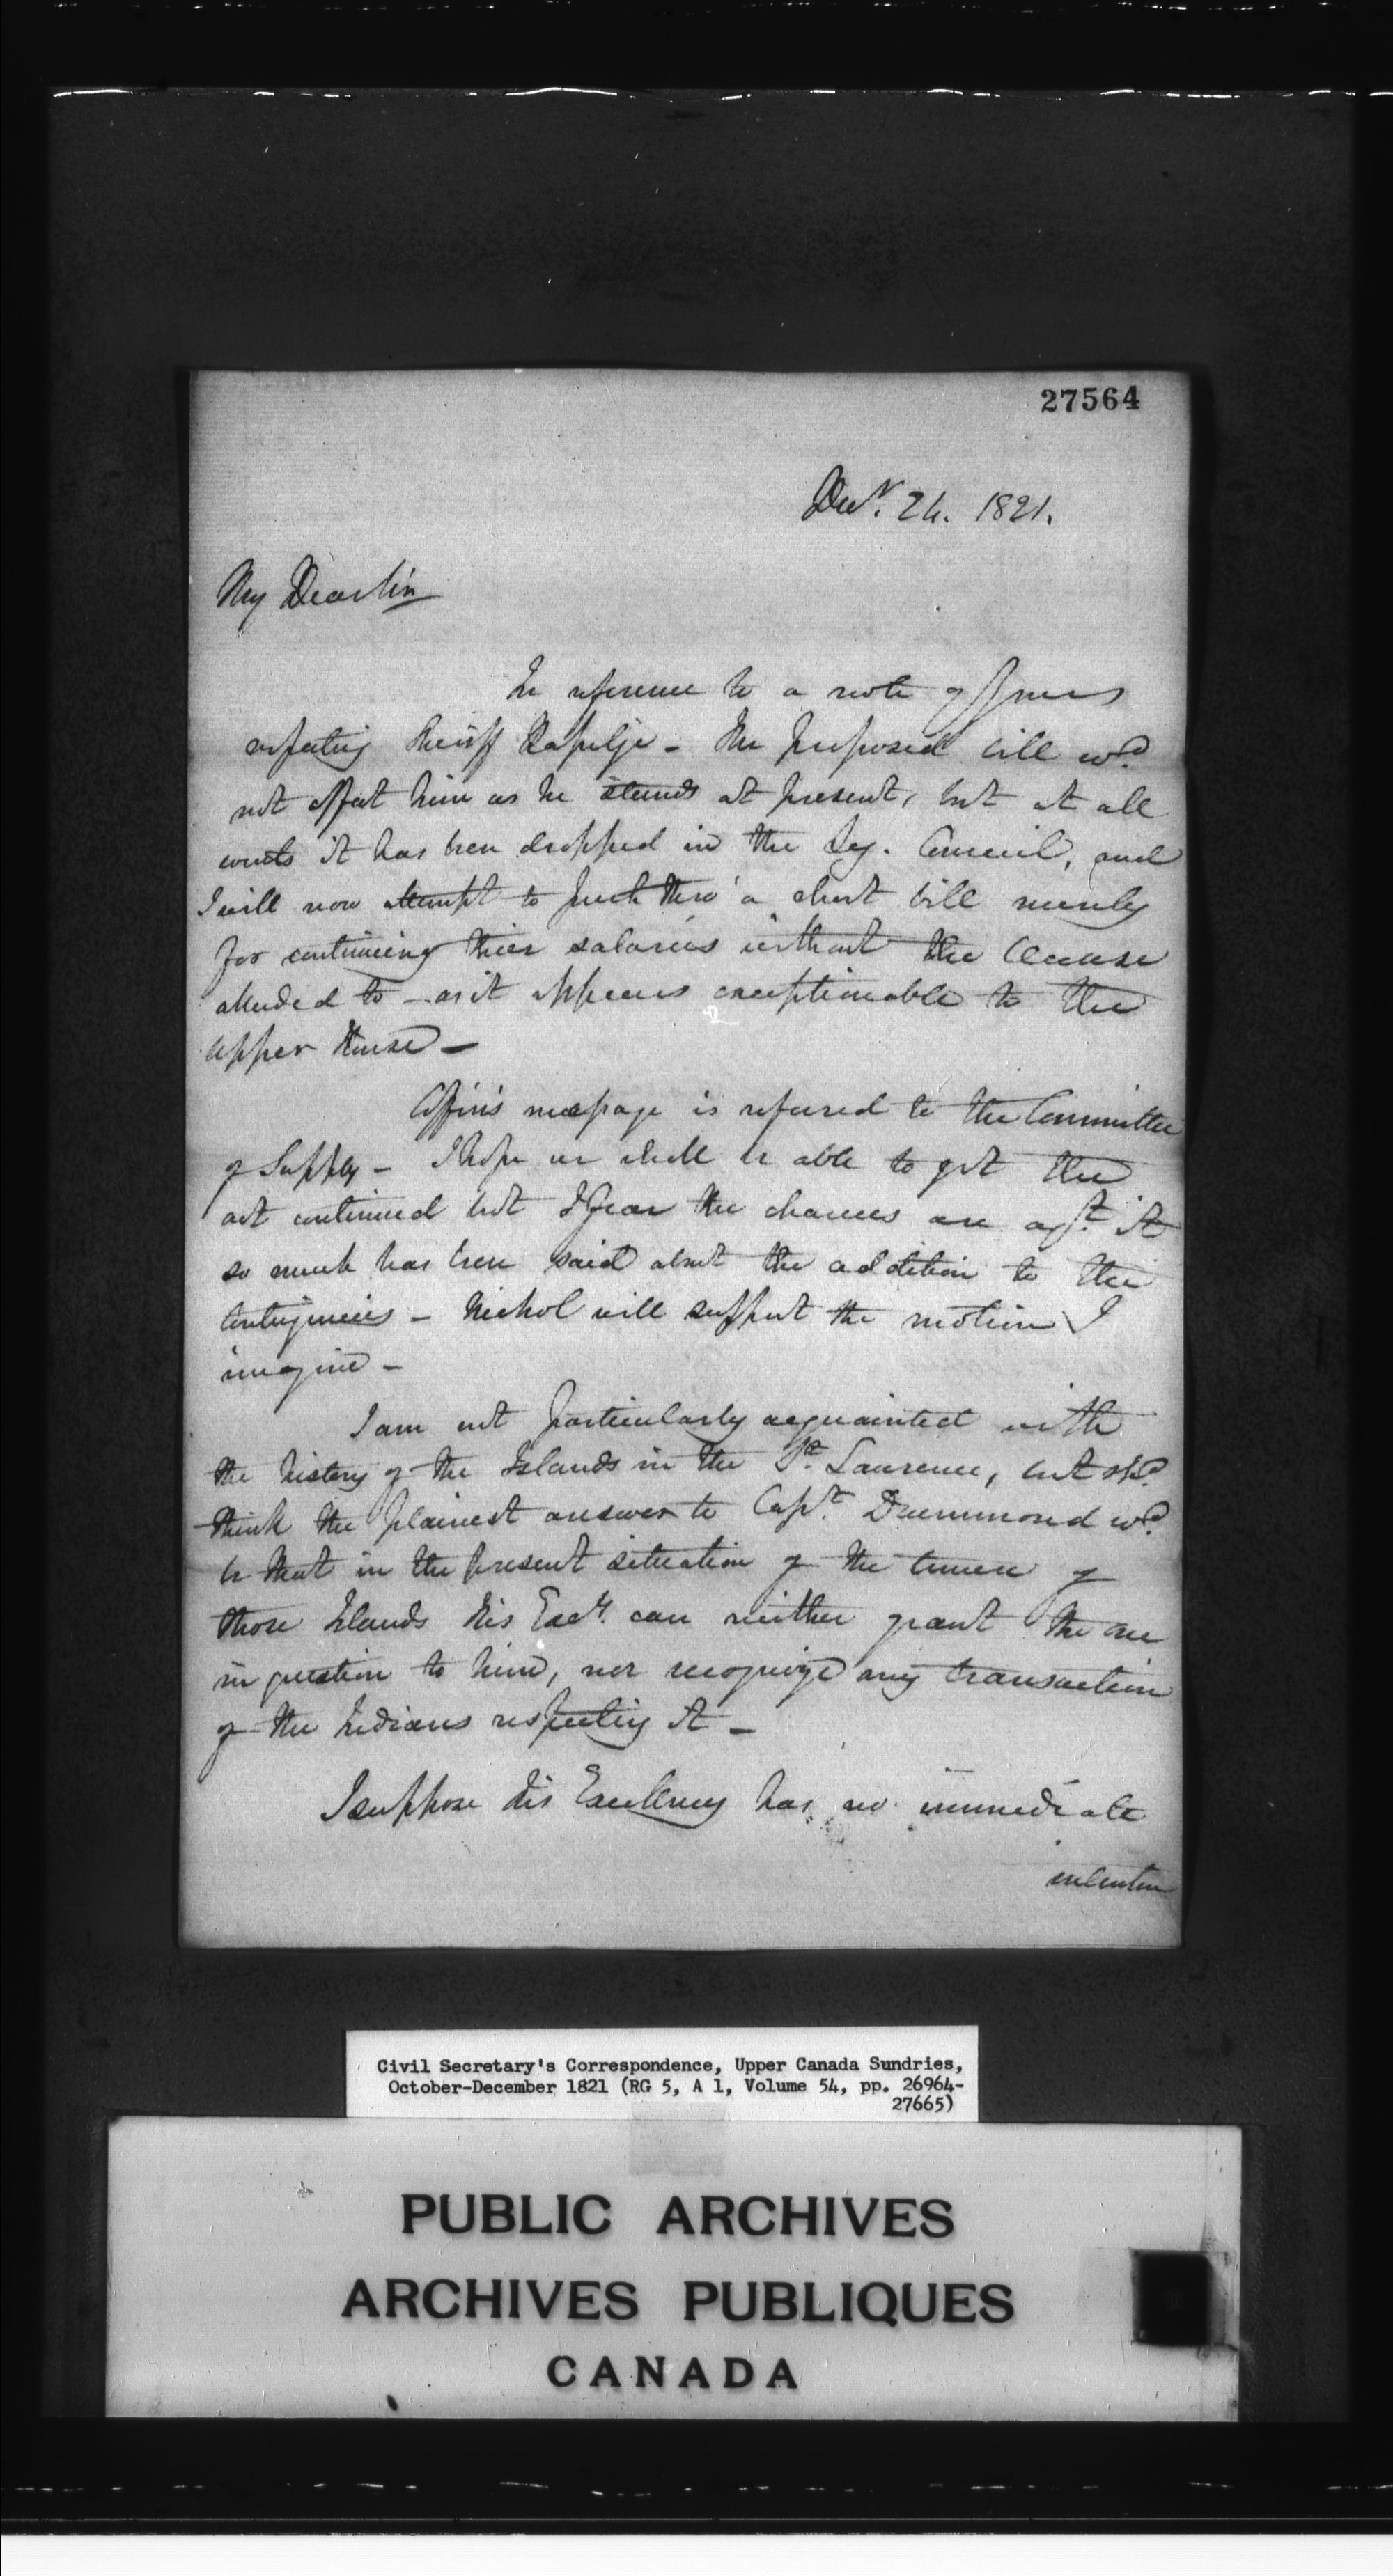 27564
Decr. 24. 1821.
My Dear Sir
In reference to a note of yours
respecting Sheriff Rapelje - the proposed bill wd.
not affect him as he stands at present, but at all
events it has been dropped in the Leg. Council, and
I will now attempt to push thro' a short bill merely
for continuing their salaries without the Clause
alluded to - as it appears exceptionable to the
upper House -
Coffin's message is referred to the Committee
of Supply - I hope we shall be able to get the
act continued but I fear the chances are agst. it
so much has been said about the addition to the
Contingencies - Nichol will support the motion I
imagine -
I am not particularly acquainted with
the history of the Islands in the St. Laurence, but shd.
think the plainest answer to Capt. Drummond wd.
be that in the present situation of the tenure of
those Islands His Excy. can neither grant the one
in question to him, nor recognize any transaction
of the Indians respecting it -
I suppose His Excellency has no immediate
intention
Civil Secretary's Correspondence, Upper Canada Sundries,
October-December 1821 (RG 5, A 1, Volume 54, pp. 26964-
27665)
PUBLIC ARCHIVES
ARCHIVES PUBLIQUES
CANADA